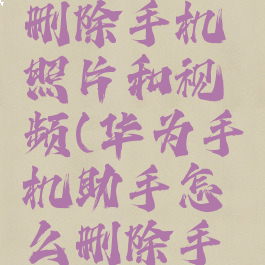 删除手机
照片和视
频(华为手
机助手怎
么删除手